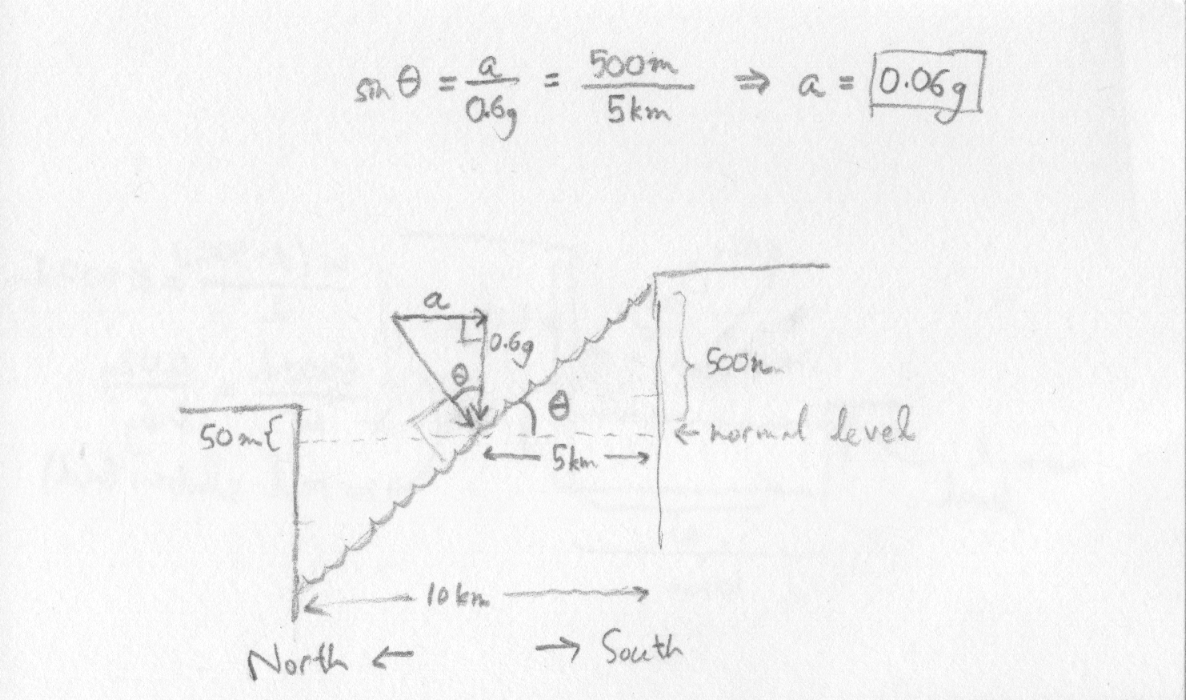 sin θ = a/0.6g = 500m/5km ⇒ a = 0.06g
a
0.6g
θ
500m
50m{
θ
← normal level
5km
10km
North ← → South